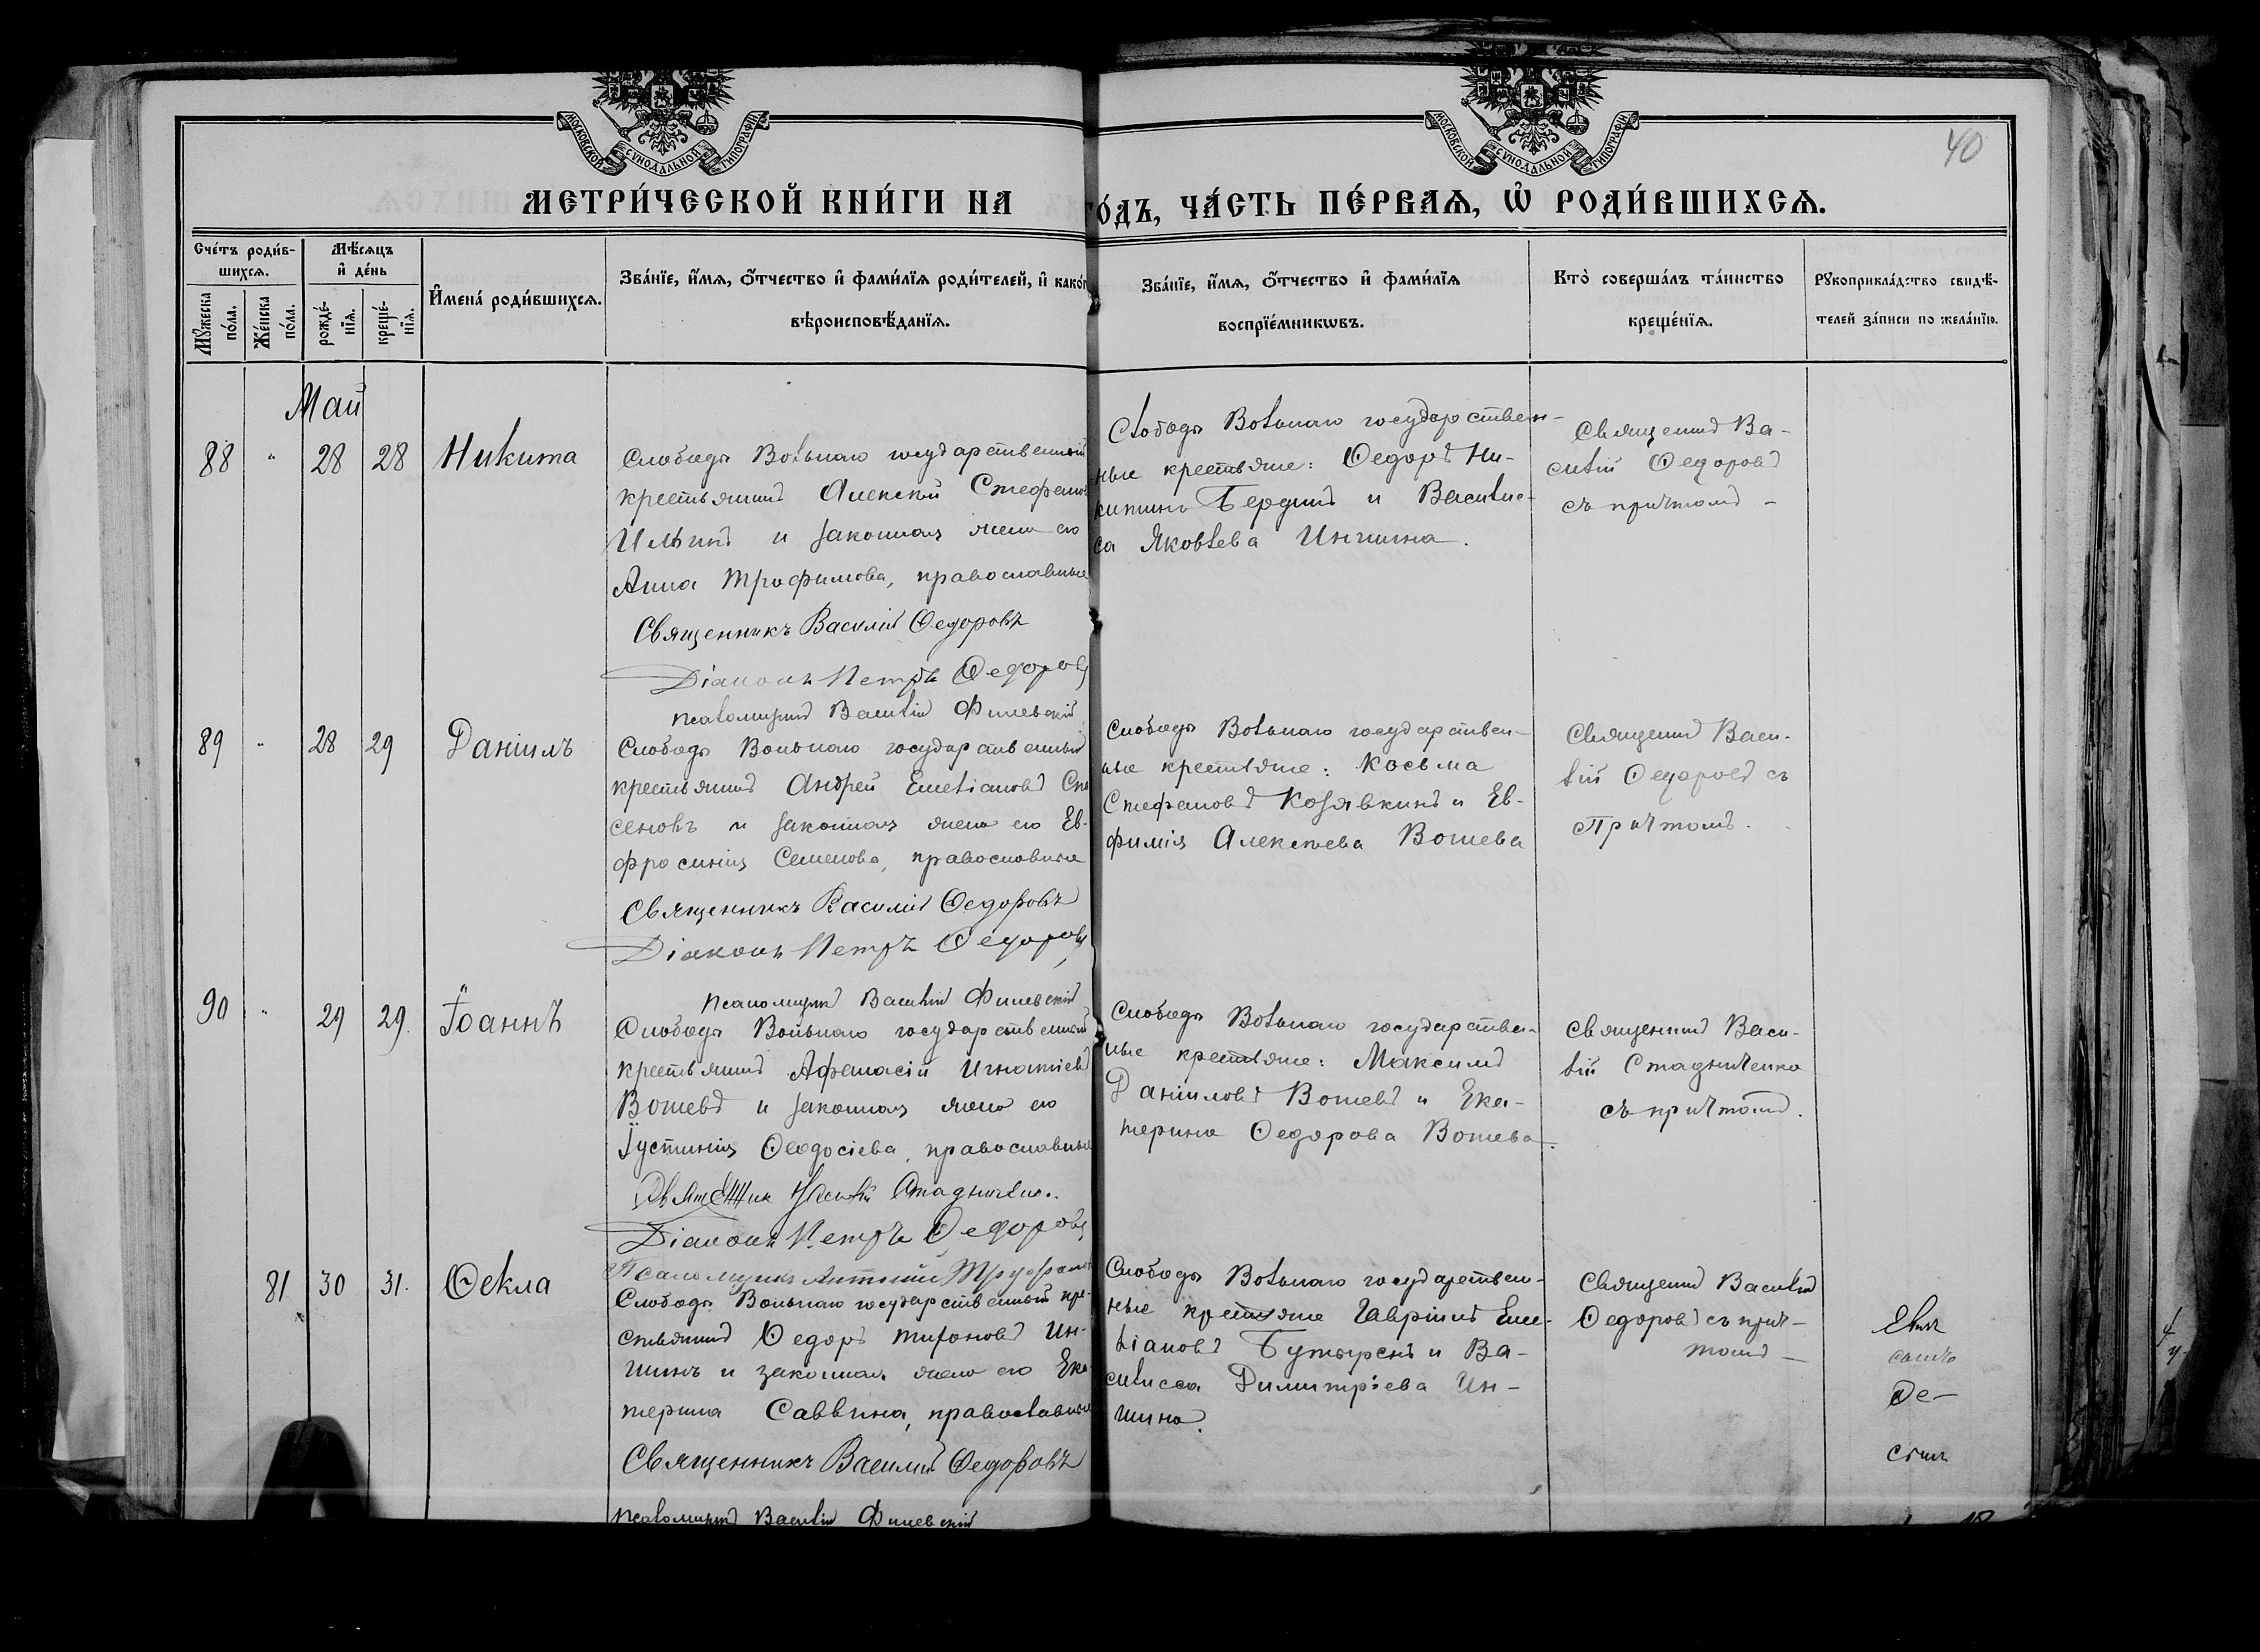 МОСКОВСКОЙ СѴНОДАЛЬНОЙ ТИПОГРАФІИ
МОСКОВСКОЙ СѴНОДАЛЬНОЙ ТИПОГРАФІИ
40
МЕТРИ́ЧЕСКОЙ КНИ́ГИ НА
ГО́ДЪ, ЧА́СТЬ ПЕ́РВАѦ, Ѿ РОДИ́ВШИХСѦ.
Сче́тъ роди́в-
шихсѧ.
Мꙋ́жеска
по́ла.
Же́нска
по́ла.
Мѣ́сѧцъ
и҆ де́нь
рожде́-
нїѧ.
креще́-
нїѧ.
И҆мена̀ роди́вшихсѧ.
Зва́нїе, и҆́мѧ, ѻ҆́тчество и҆ фами́лїѧ роди́телей, и҆ како́г
вѣроисповѣ́данїѧ.
Зва́нїе, и҆́мѧ, ѻ҆́тчество и҆ фами́лїѧ
воспрїе́мникѡвъ.
Кто̀ соверша́лъ та́инство
креще́нїѧ.
Рꙋкоприкла́дство свидѣ́-
телей за́писи по жела́нїю.
Май
88 " 28 28 Никита
Слободы Вольнаго государственный
крестьянинъ Алексѣй Стефанов
Ильинъ и законная жена его
Анна Трофимова, православные
Священникъ Василій Ѳедоровъ
Діаконъ Петръ Ѳедоровъ
псаломщикъ Василій Филевскій
Слободы Вольнаго государствен-
ные крестьяне: Ѳедоръ Ни-
китинъ Бердинъ и Васили-
са Яковлева Иншина.
Священникъ Ва-
силій Ѳедоровъ
съ причтомъ -
89 " 28 29 Даніилъ
Слободы Вольнаго государственный
крестьянинъ Андрей Емеліановъ
сеновъ и законная жена его Ев-
фросинія Семенова, православные
Священникъ Василій Ѳедоровъ
Діаконъ Петръ Ѳедоровъ
псаломщикъ Василій Филевскій
Слободы Вольнаго государствен-
ные крестьяне: Косьма
Стефановъ Козявкинъ и Ев-
фимія Алексѣева Вошева
Священникъ Васи-
лій Ѳедоровъ съ
Причтомъ.
90 " 29 29. Іоаннъ
Слободы Вольнаго государственный
крестьянинъ Аѳанасій Игнатіевъ
Вошевъ и законная жена его
Іустинія Ѳеодосіева, православные
Священник Василій Стадниченко.
Діаконъ Петръ Ѳедоровъ
Псаломщикъ Антоній
Слободы Вольнаго государствен-
ные крестьяне: Максимъ
Даніиловъ Вошевъ и Ека-
терина Ѳедорова Вошева.
Священникъ Васи-
лій Стадниченко
съ причтомъ.
81 30 31. Ѳекла
Слободы Вольнаго государственный кре-
стьянинъ Ѳедоръ Тихоновъ Ин-
шинъ и законная жена его Ека-
терина Саввина, православные
Священникъ Василій Ѳедоровъ
псаломщикъ Василій Филевскій
Слободы Вольнаго государствен-
ные крестьяне Гавріилъ Еме-
ліановъ Бутыренъ и Ва-
силисса Димитріева Ин-
шина.
Священникъ Василій
Ѳедоровъ съ прич-
томъ -